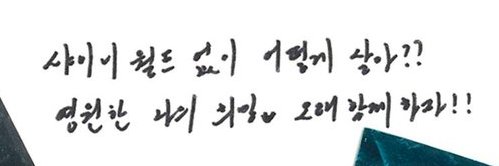 샤이니 월드 없이 어떻게 살아??
영원한 나의 희망♥ 오래 함께 하자!!